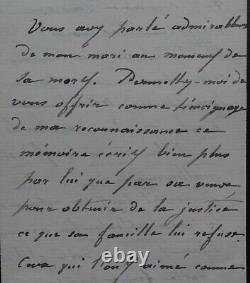 Vous avez parlé admirablement
de mon mari au moment de
sa mort. Permettez-moi de
vous offrir comme témoignage
de ma reconnaissance ce
mémoire écrit bien plus
par lui que par sa veuve
pour obtenir de la justice
ce que sa famille lui refuse.
Ceux qui l'ont aimé comme